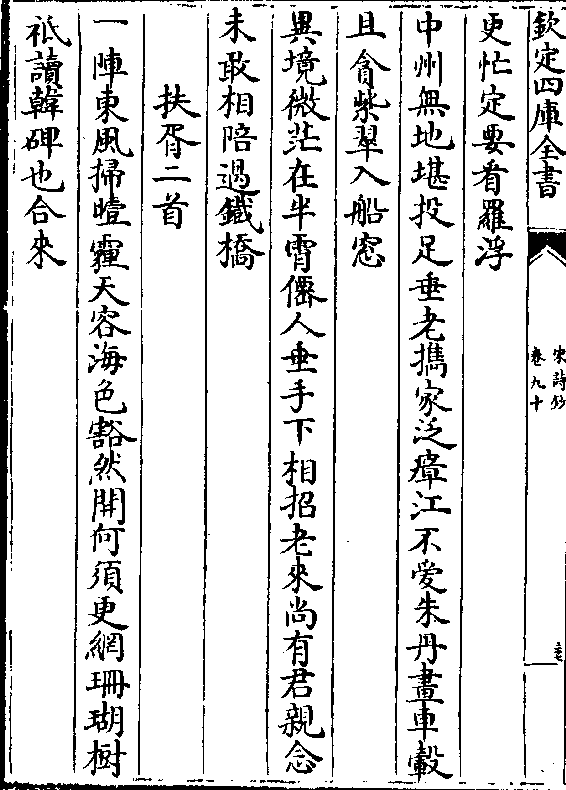 欽定四庫全書
宋詩鈔
卷九十
更忙定要看羅浮
中州無地堪投足垂老攜家泛瘴江不愛朱丹畫車轂
且貪紫翠入船窓
異境微茫在半霄僊人垂手下相招老來尚有君親念
未敢相陪過鐵橋
扶胥二首
一陣東風掃曀霾天容海色豁然開何須更網珊瑚樹
祇讀韓碑也合來